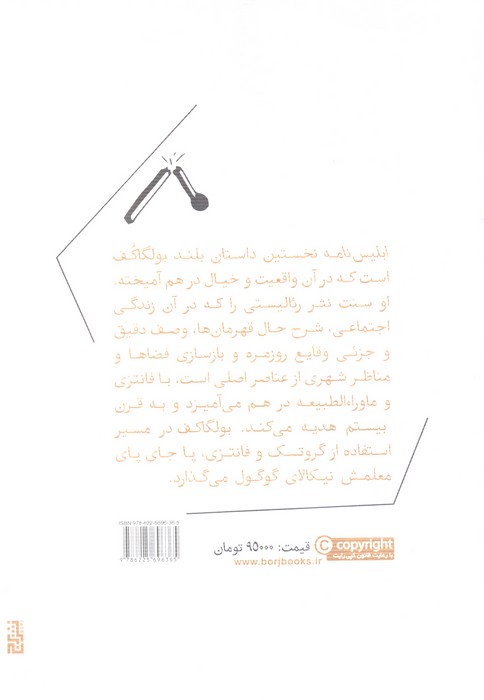 ابلیس‌نامه نخستین داستان بلند بولگاکُف
است که در آن واقعیت و خیال در هم آمیخته.
او سنت نثر رئالیستی را که در آن زندگی
اجتماعی، شرح حال قهرمان‌ها، وصف دقیق
و جزئی وقایع روزمره و بازسازی فضاها و
مناظر شهری از عناصر اصلی است، با فانتزی
و ماوراءالطبیعه در هم می‌آمیزد و به قرن
بیستم هدیه می‌کند. بولگاکف در مسیر
استفاده از گروتسک و فانتزی، پا جای پای
معلمش نیکالای گوگول می‌گذارد.
ISBN 978-622-5696-36-5
9 786225 696365
قیمت: ۹۵۰۰۰ تومان
www.borjbooks.ir
© copyright
با رعایت قانون کپی‌رایت